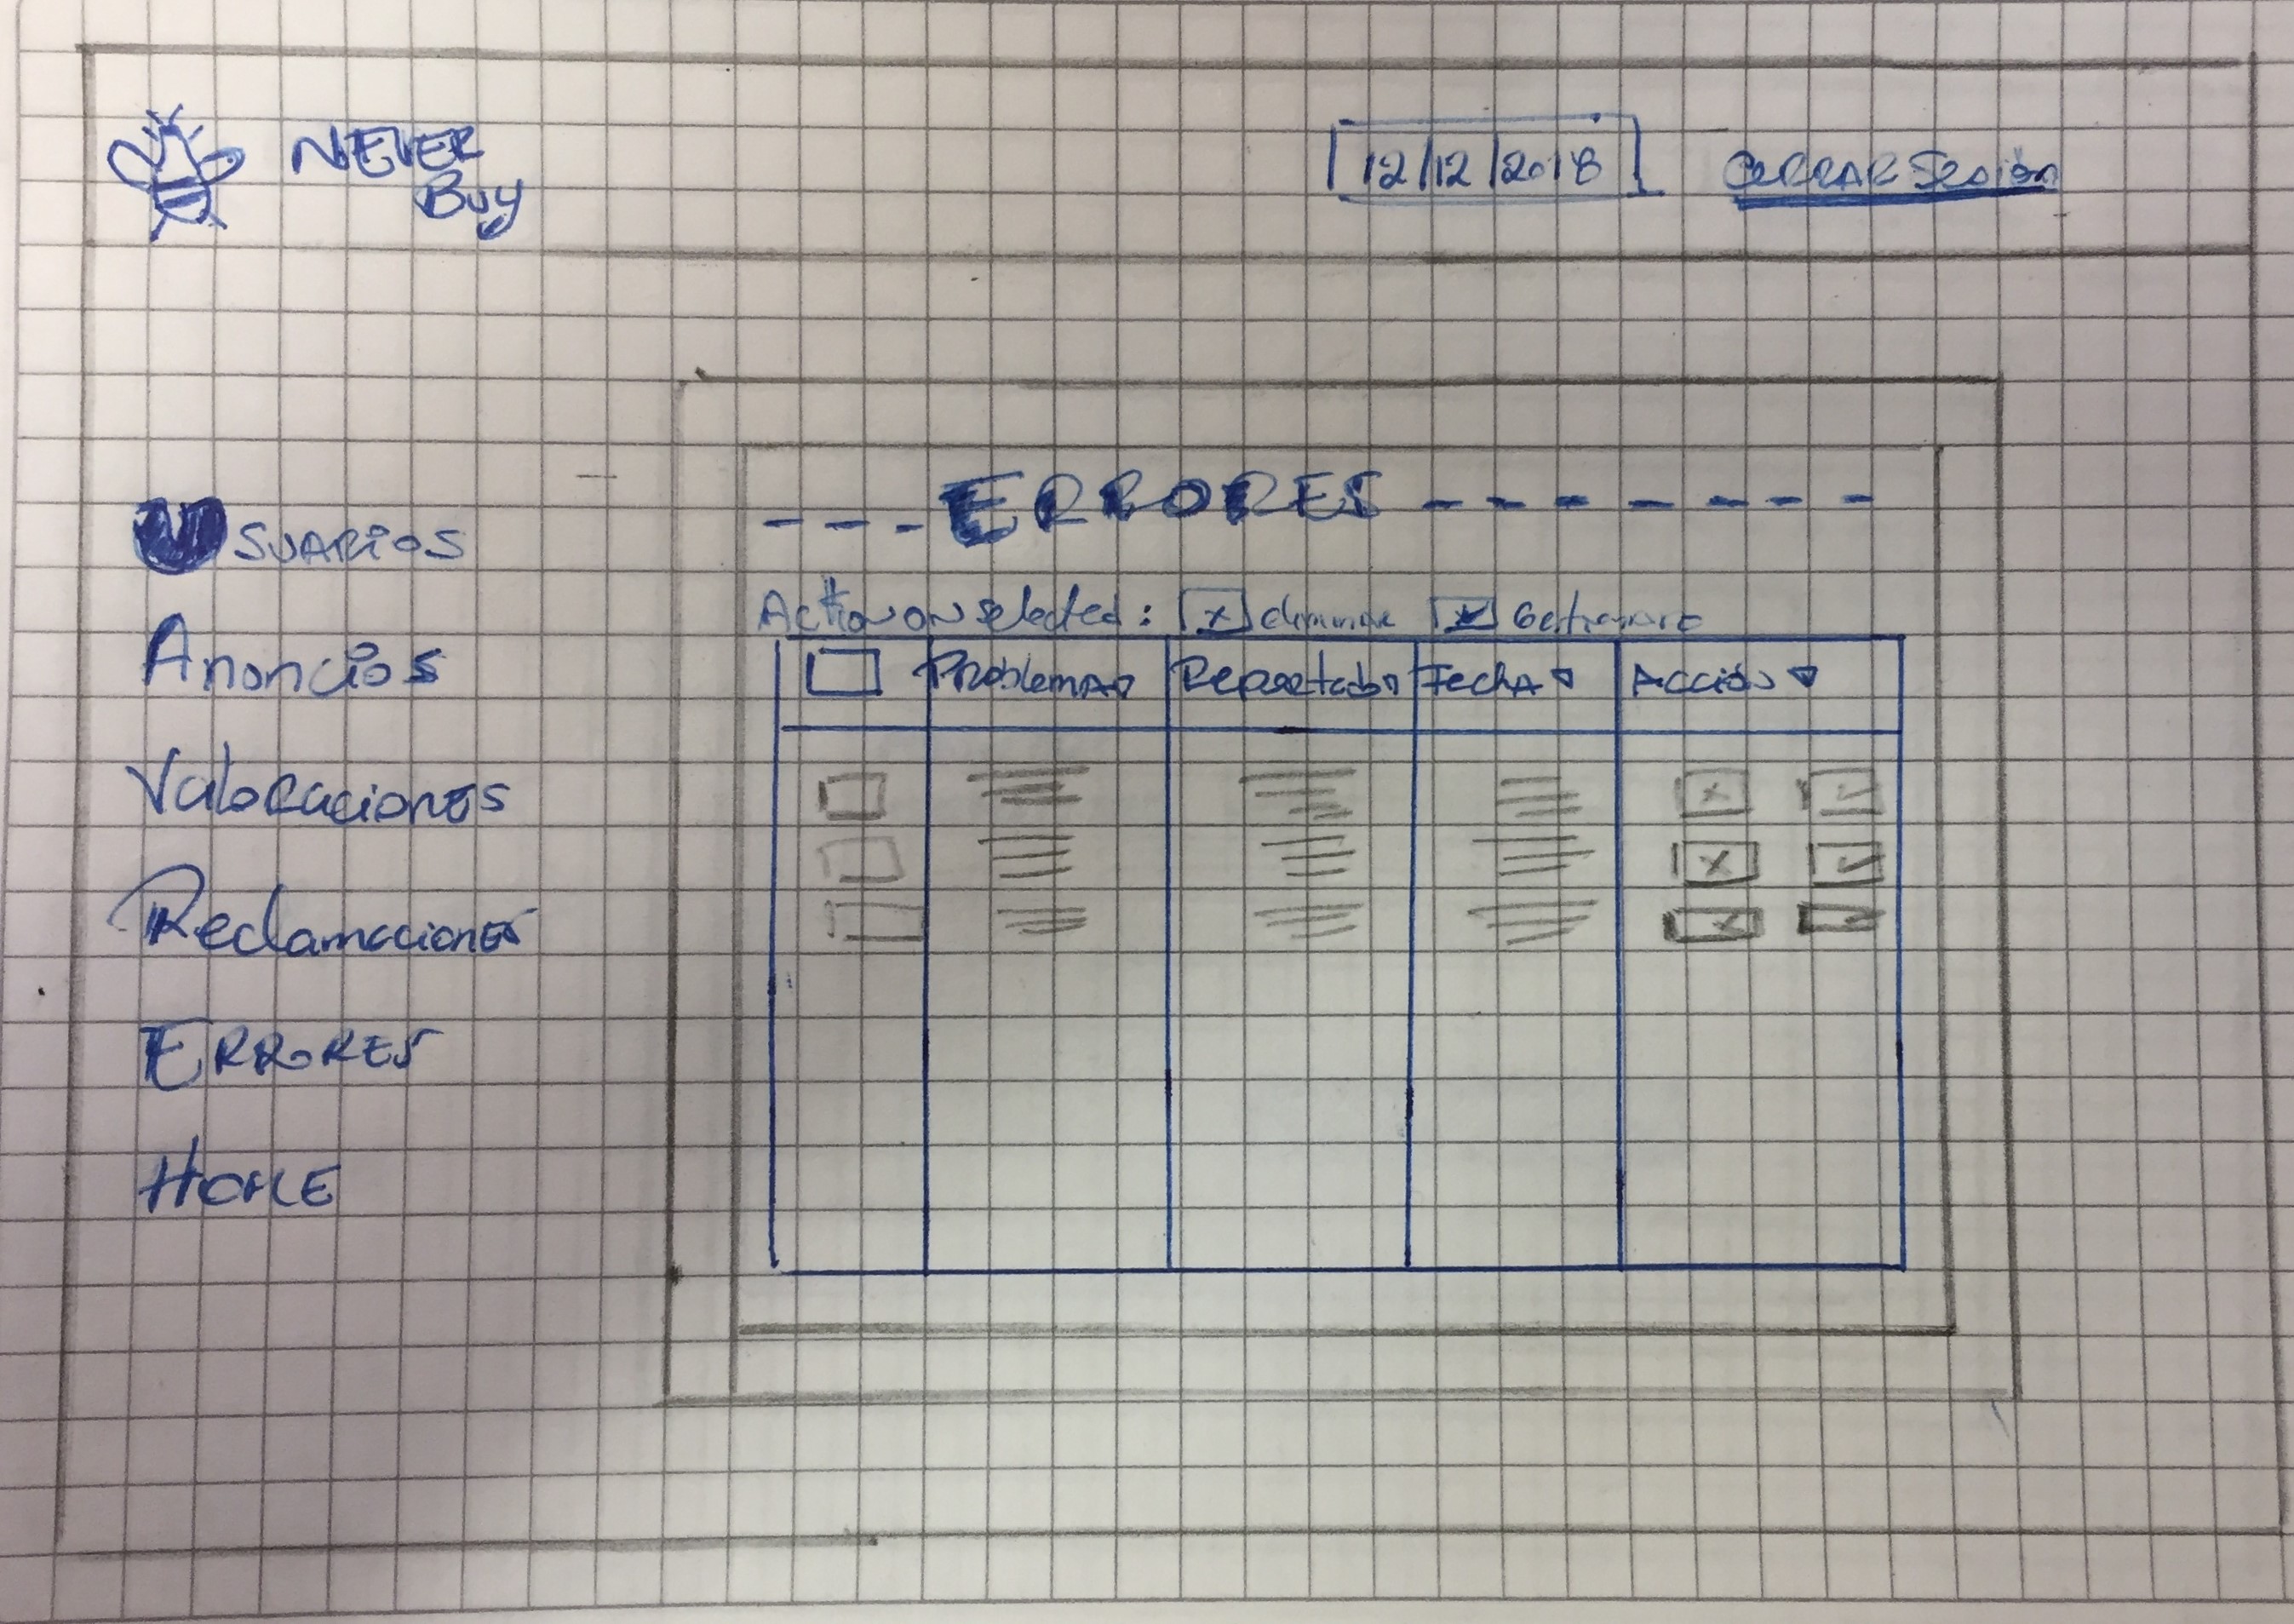 NEVER
Buy
12/12/2018
CERRAR Sesión
USUARIOS
Anoncios
Valoraciones
Reclamaciones
ERRORES
HOME
--- ERRORES -------
Action on selected: eliminar
Problema Reportado Fecha Acción